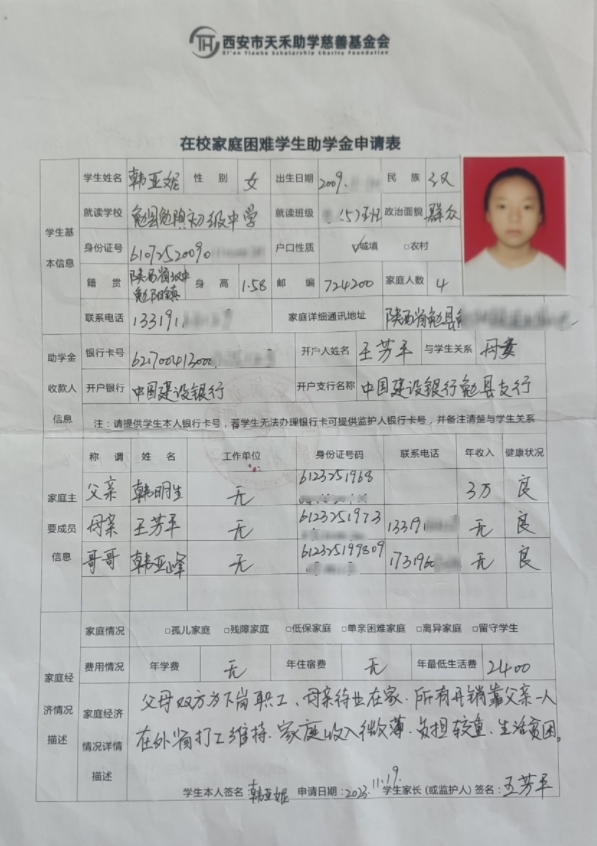 西安市天禾助学慈善基金会
Xi'an Tianhe Scholarship Charity Foundation
在校家庭困难学生助学金申请表
学生基本信息
学生姓名 韩亚妮 性别 女 出生日期 2009. 民族 汉
就读学校 勉县勉阳初级中学 就读班级 (5)班 政治面貌 群众
身份证号 61072520090 户口性质 ☑城填 □农村
籍贯 陕西省汉中勉阳镇 身高 1.58 邮编 724200 家庭人数 4
联系电话 133191 家庭详细通讯地址 陕西省勉县
助学金收款人信息
银行卡号 621700413000 开户人姓名 王芳平 与学生关系 母女
开户银行 中国建设银行 开户支行名称 中国建设银行勉县支行
注：请提供学生本人银行卡号，若学生无法办理银行卡可提供监护人银行卡号，并备注清楚与学生关系
家庭主要成员信息
称谓 姓名 工作单位 身份证号码 联系电话 年收入 健康状况
父亲 韩明生 无 6123251968 3万 良
母亲 王芳平 无 6123251973 13319 无 良
哥哥 韩亚峰 无 612325199809 173196 无 良
家庭经济情况描述
家庭情况 □孤儿家庭 □残障家庭 □低保家庭 □单亲困难家庭 □离异家庭 □留守学生
费用情况 年学费 无 年住宿费 无 年最低生活费 2400
家庭经济情况详情描述
父母双方为下岗职工、母亲待业在家、所有开销靠父亲一人
在外省打工维持、家庭收入微薄、负担较重、生活贫困。
学生本人签名 韩亚妮 申请日期：2023.11.19. 学生家长(或监护人)签名：王芳平